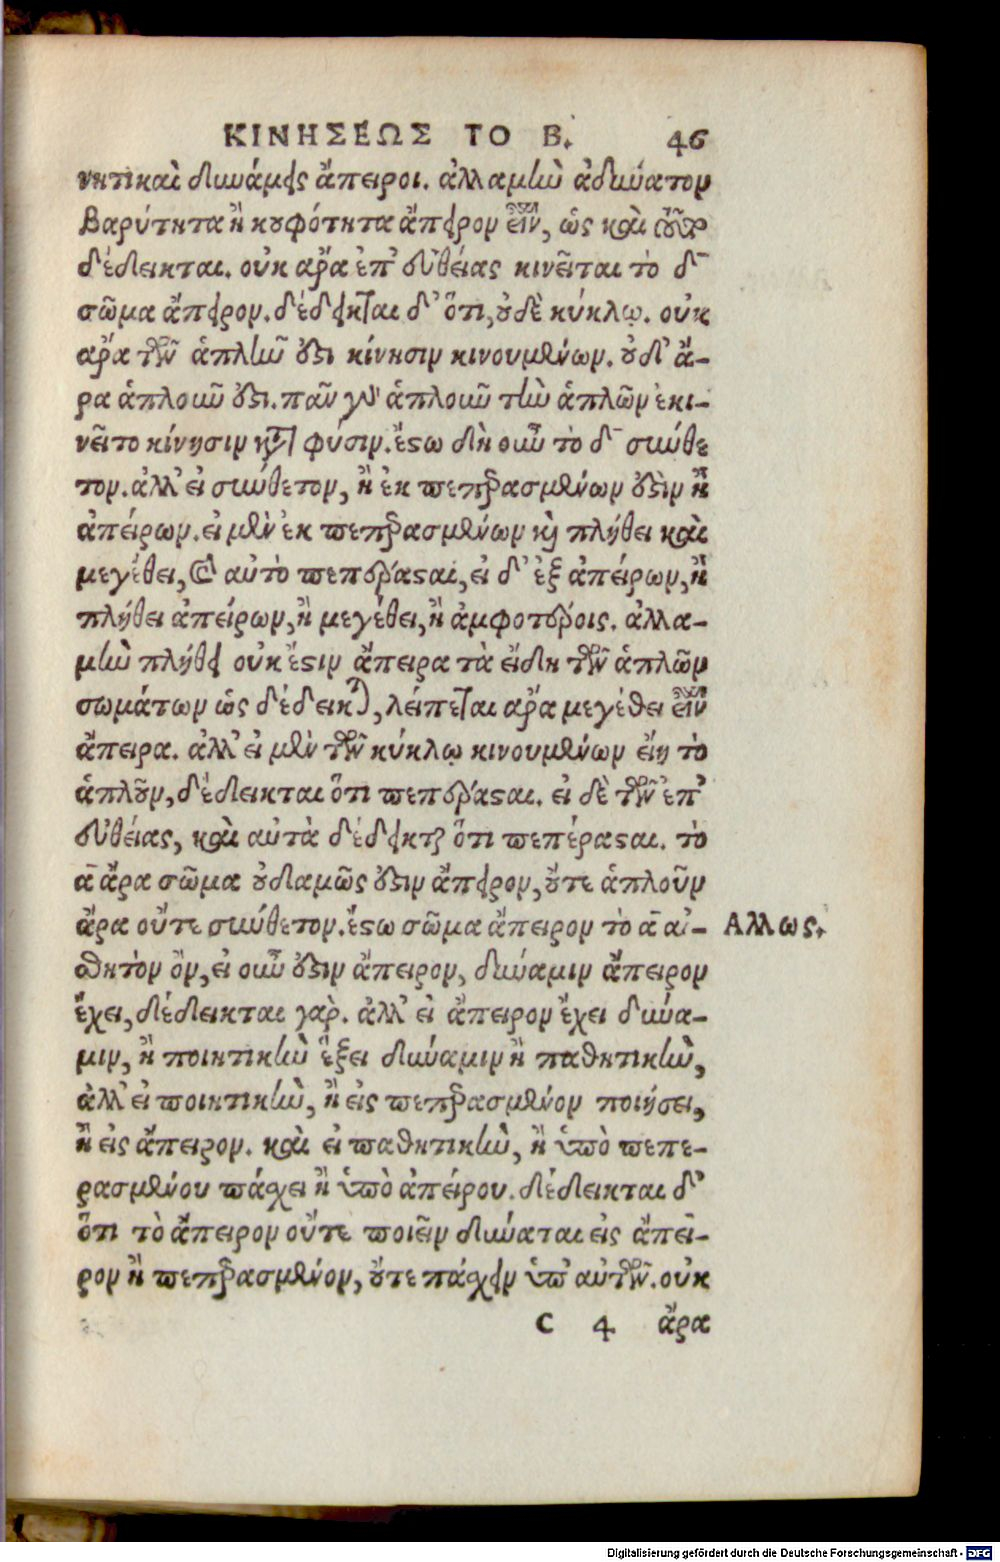 ΚΙΝΗΣΕΩΣ ΤΟ Β. 46
νητικαὶ δυνάμεις ἄπειροι. ἀλλαμὴν ἀδύνατον
βαρύτητα ἢ κουφότητα ἄπειρον εἶναι, ὡς καὶ
δέδεικται. οὐκ αρα ἐπ᾽ εὐθείας κινεῖται τὸ δ̄
σῶμα ἄπειρον. δέδεικται δ᾽ ὅτι, οὐδὲ κύκλῳ. οὐκ
αρα τῶν ἁπλῆν ἐστι κίνησιν κινουμένων. οὐδ᾽ ἄ-
ρα ἁπλοῦν ἐστι. πᾶν γὰρ ἁπλοῦν τὴν ἁπλῶν ἐκι-
νεῖτο κίνησιν κατὰ φύσιν. ἔστω δὴ οὖν τὸ δ̄ σύνθε
τον. ἀλλ᾽ εἰ σύνθετον, ἢ ἐκ πεπερασμένων ἐστὶν ἢ
ἀπείρων. εἰ μὲν ἐκ πεπερασμένων καὶ πλήθει καὶ
μεγέθει, καὶ αὐτὸ πεπέρασται, εἰ δ᾽ ἐξ ἀπείρων, ἢ
πλήθει ἀπείρων, ἢ μεγέθει, ἢ ἀμφοτέροις. ἀλλα-
μὴν πλήθει οὐκ ἔστιν ἄπειρα τὰ εἴδη τῶν ἁπλῶν
σωμάτων ὡς δέδεικται, λείπεται αρα μεγέθει εἶναι
ἄπειρα. ἀλλ᾽ εἰ μὲν τῶν κύκλῳ κινουμένων εἴη τὸ
ἁπλοῦν, δέδεικται ὅτι πεπέρασται. εἰ δὲ τῶν ἐπ᾽
εὐθείας, καὶ αὐτὰ δέδεικται ὅτι πεπέρασται. τὸ
ᾱ ἄρα σῶμα οὐδαμῶς ἐστιν ἄπειρον, οὔτε ἁπλοῦν
ἄρα οὔτε σύνθετον. ἔστω σῶμα ἄπειρον τὸ ᾱ αἰ- Αλλως.
σθητὸν ὂν, εἰ οὖν ἐστιν ἄπειρον, δύναμιν ἄπειρον
ἔχει, δέδεικται γαρ. ἀλλ᾽ εἰ ἄπειρον ἔχει δύνα-
μιν, ἢ ποιητικὴν ἕξει δύναμιν ἢ παθητικὴν,
ἀλλ᾽ εἰ ποιητικὴν, ἢ εἰς πεπερασμένον ποιήσει,
ἢ εἰς ἄπειρον. καὶ εἰ παθητικὴν, ἢ ὑπὸ πεπε-
ρασμένου πάσχει ἢ ὑπὸ ἀπείρου. δέδεικται δ᾽
ὅτι τὸ ἄπειρον οὔτε ποιεῖν δύναται εἰς ἄπει-
ρον ἢ πεπερασμένον, οὔτε πάσχειν ὑπ᾽ αὐτῶν. οὐκ
C 4 ἄρα
Digitalisierung gefördert durch die Deutsche Forschungsgemeinschaft - DFG